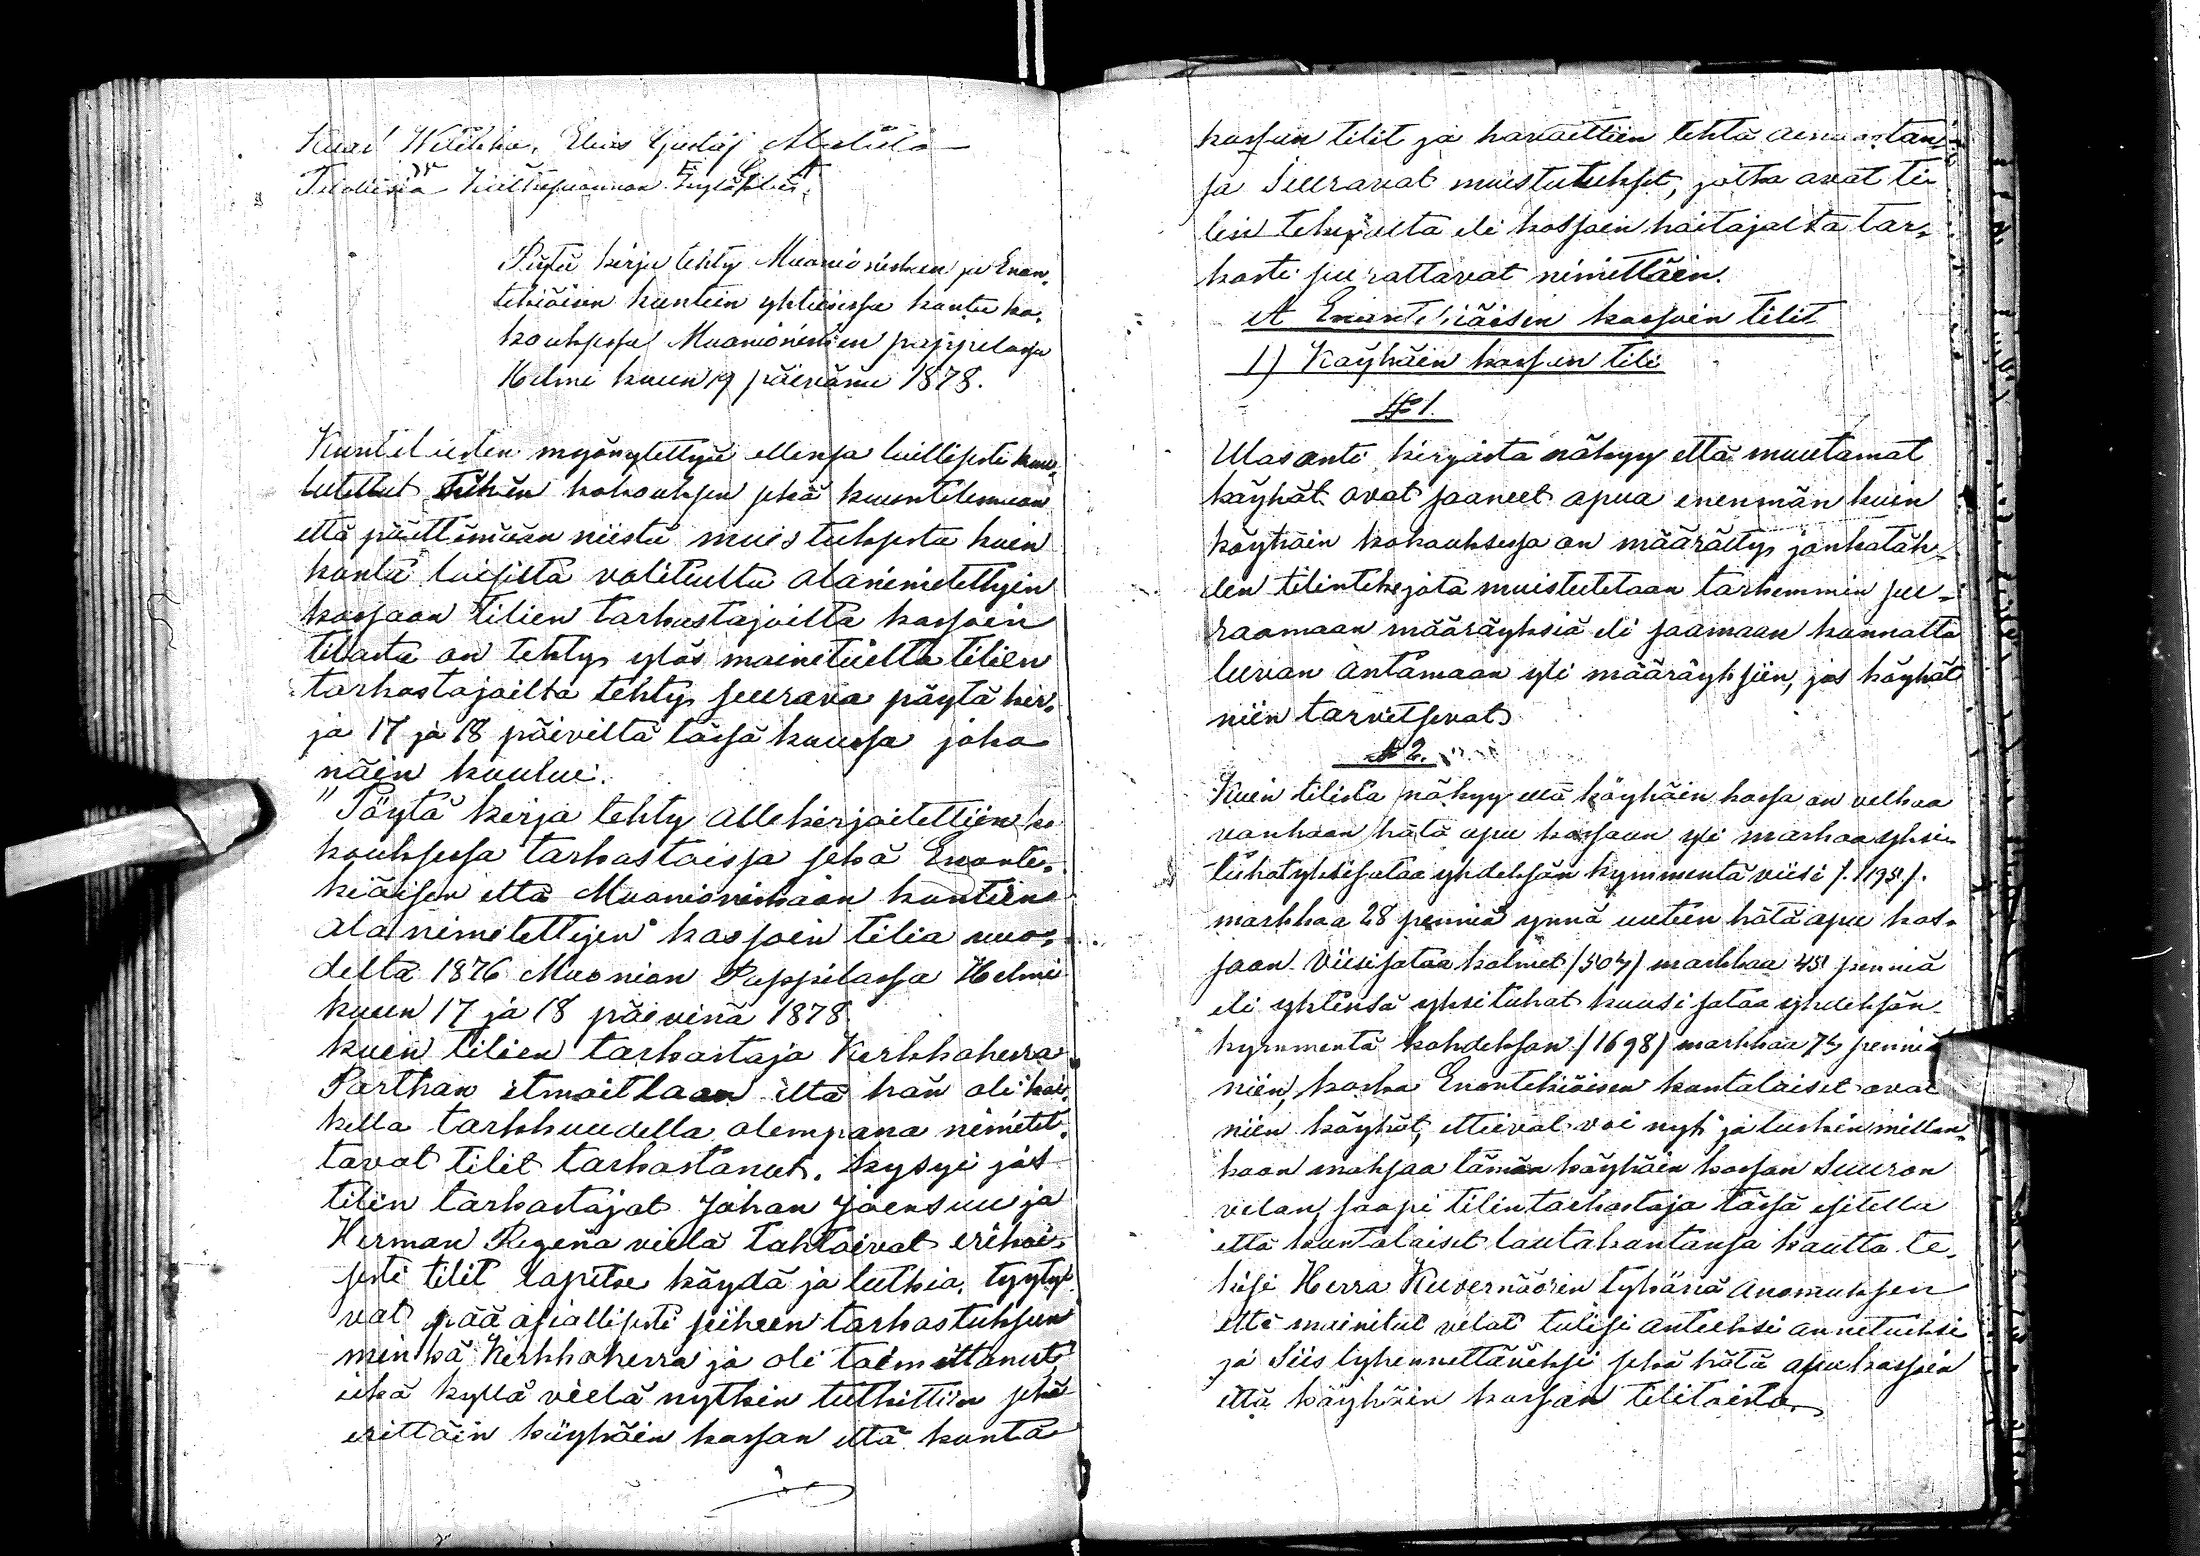 Elias Gustaf
Pöytä kirja tehty Muonionisken ja Enon,
tekiäisen kuntein yhteisessä kunta ko,
kouksessa Muonionisken pappilassa
Helmi kuun 19 päivänä 1878.
myönnytettyä ellensa laillisesti kuu,
lutettut kokouksen sekä kuuntelemaan
että päättämään niistä muistuksista kuin
kunta laisilta valituilta alanimitettyin
kassaan tilien tarkastajoilta kassain
tilasta on tehty, ylös mainituilta tilien
tarkastajailta tehty seurava pöytä kir,
ja 17 ja 18 päiviltä tässä kuussa joka
näin kuuluu:
"Pöytä kirja tehty allekirjoitettiin ko
kouksessa tarkastaissa sekä Enonte,
kiäisen että Muonioniskaan kuntiin
ala nimitettyjen kassain tilia vuo,
delta 1876 Muonion Pappilassa Helmi
kuun 17 ja 18 päivinä 1878.
kuin tilien tarkastaja Kirkkoherra
Parthan ilmoittaan että hän oli kai,
kella tarkkuudella alempana nimitet,
tavat tilit tarkastanut, kysyi jos
tilin tarkastajat Johan Joensuu ja
Herman Regina vielä tahtoivat erikoi,
sesti tilit läpitse käydä ja tutkia, tyyty,
vat pää asiallisesti siiheen tarkastuksen
minkä Kirkkoherra jo oli toimittanut,
jotka kyllä vielä nytkin tutkittiin sekä
erittäin köyhäin kassan että kunta
kassan tilit ja havaittiin tehtä
ja seuravat muistutukset, jotka ovat ti
lin tekijältä eli kassain haitajalta tar,
kasti seurattavat nimittäin.
A Enontekiäisen kassain tilit
1) Köyhäin kassan tili
№ 1.
Ulosanti kirjasta näkyy että muutamat
käyhät ovat saaneet apua enenmän kuin
köyhäin kokouksessa on määrätty, jonkatäh,
den tilintekejätä muistutetaan tarkemmin seu-
raamaan määräyksiä eli saamaan kunnalta
luvan antamaan yli määräyksiin, jos köyhät
niin tarvitsevat.
№ 2.
Kuin tilistä näkyy että köyhäin kassa on velkaa
vanhaan hätä apu kassaan yli markaa yksi-
tuhatyksisataa yhdeksän kymmentä viisi /.1195/.
markkaa 28 penniä ynnä uuteen hätä apu kas,
saan viisisataa kolmet /503/ markkaa 45 penniä
eli yhtensä yksituhat kuusi sataa yhdeksän-
kymmentä kahdeksan /1698/ markkaa 73 penniä
niin, koska Enontekiäisen kuntalaiset ovat
niin köyhät, etteivät voi nyt ja tuskin millon,
kaan maksaa tämän köyhäin kassan suuren
velan, saapi tilintarkastaja tässä esitellä
että kuntalaiset lautakuntansa kautta te,
kisi Herra Kuvernöörin tykönä anomuksen
että mainitut velat tulisi anteeksi annetuiksi
ja siis lyhennettäväksi sekä hätä apu kassain
että köyhäin kassan tilitoista.